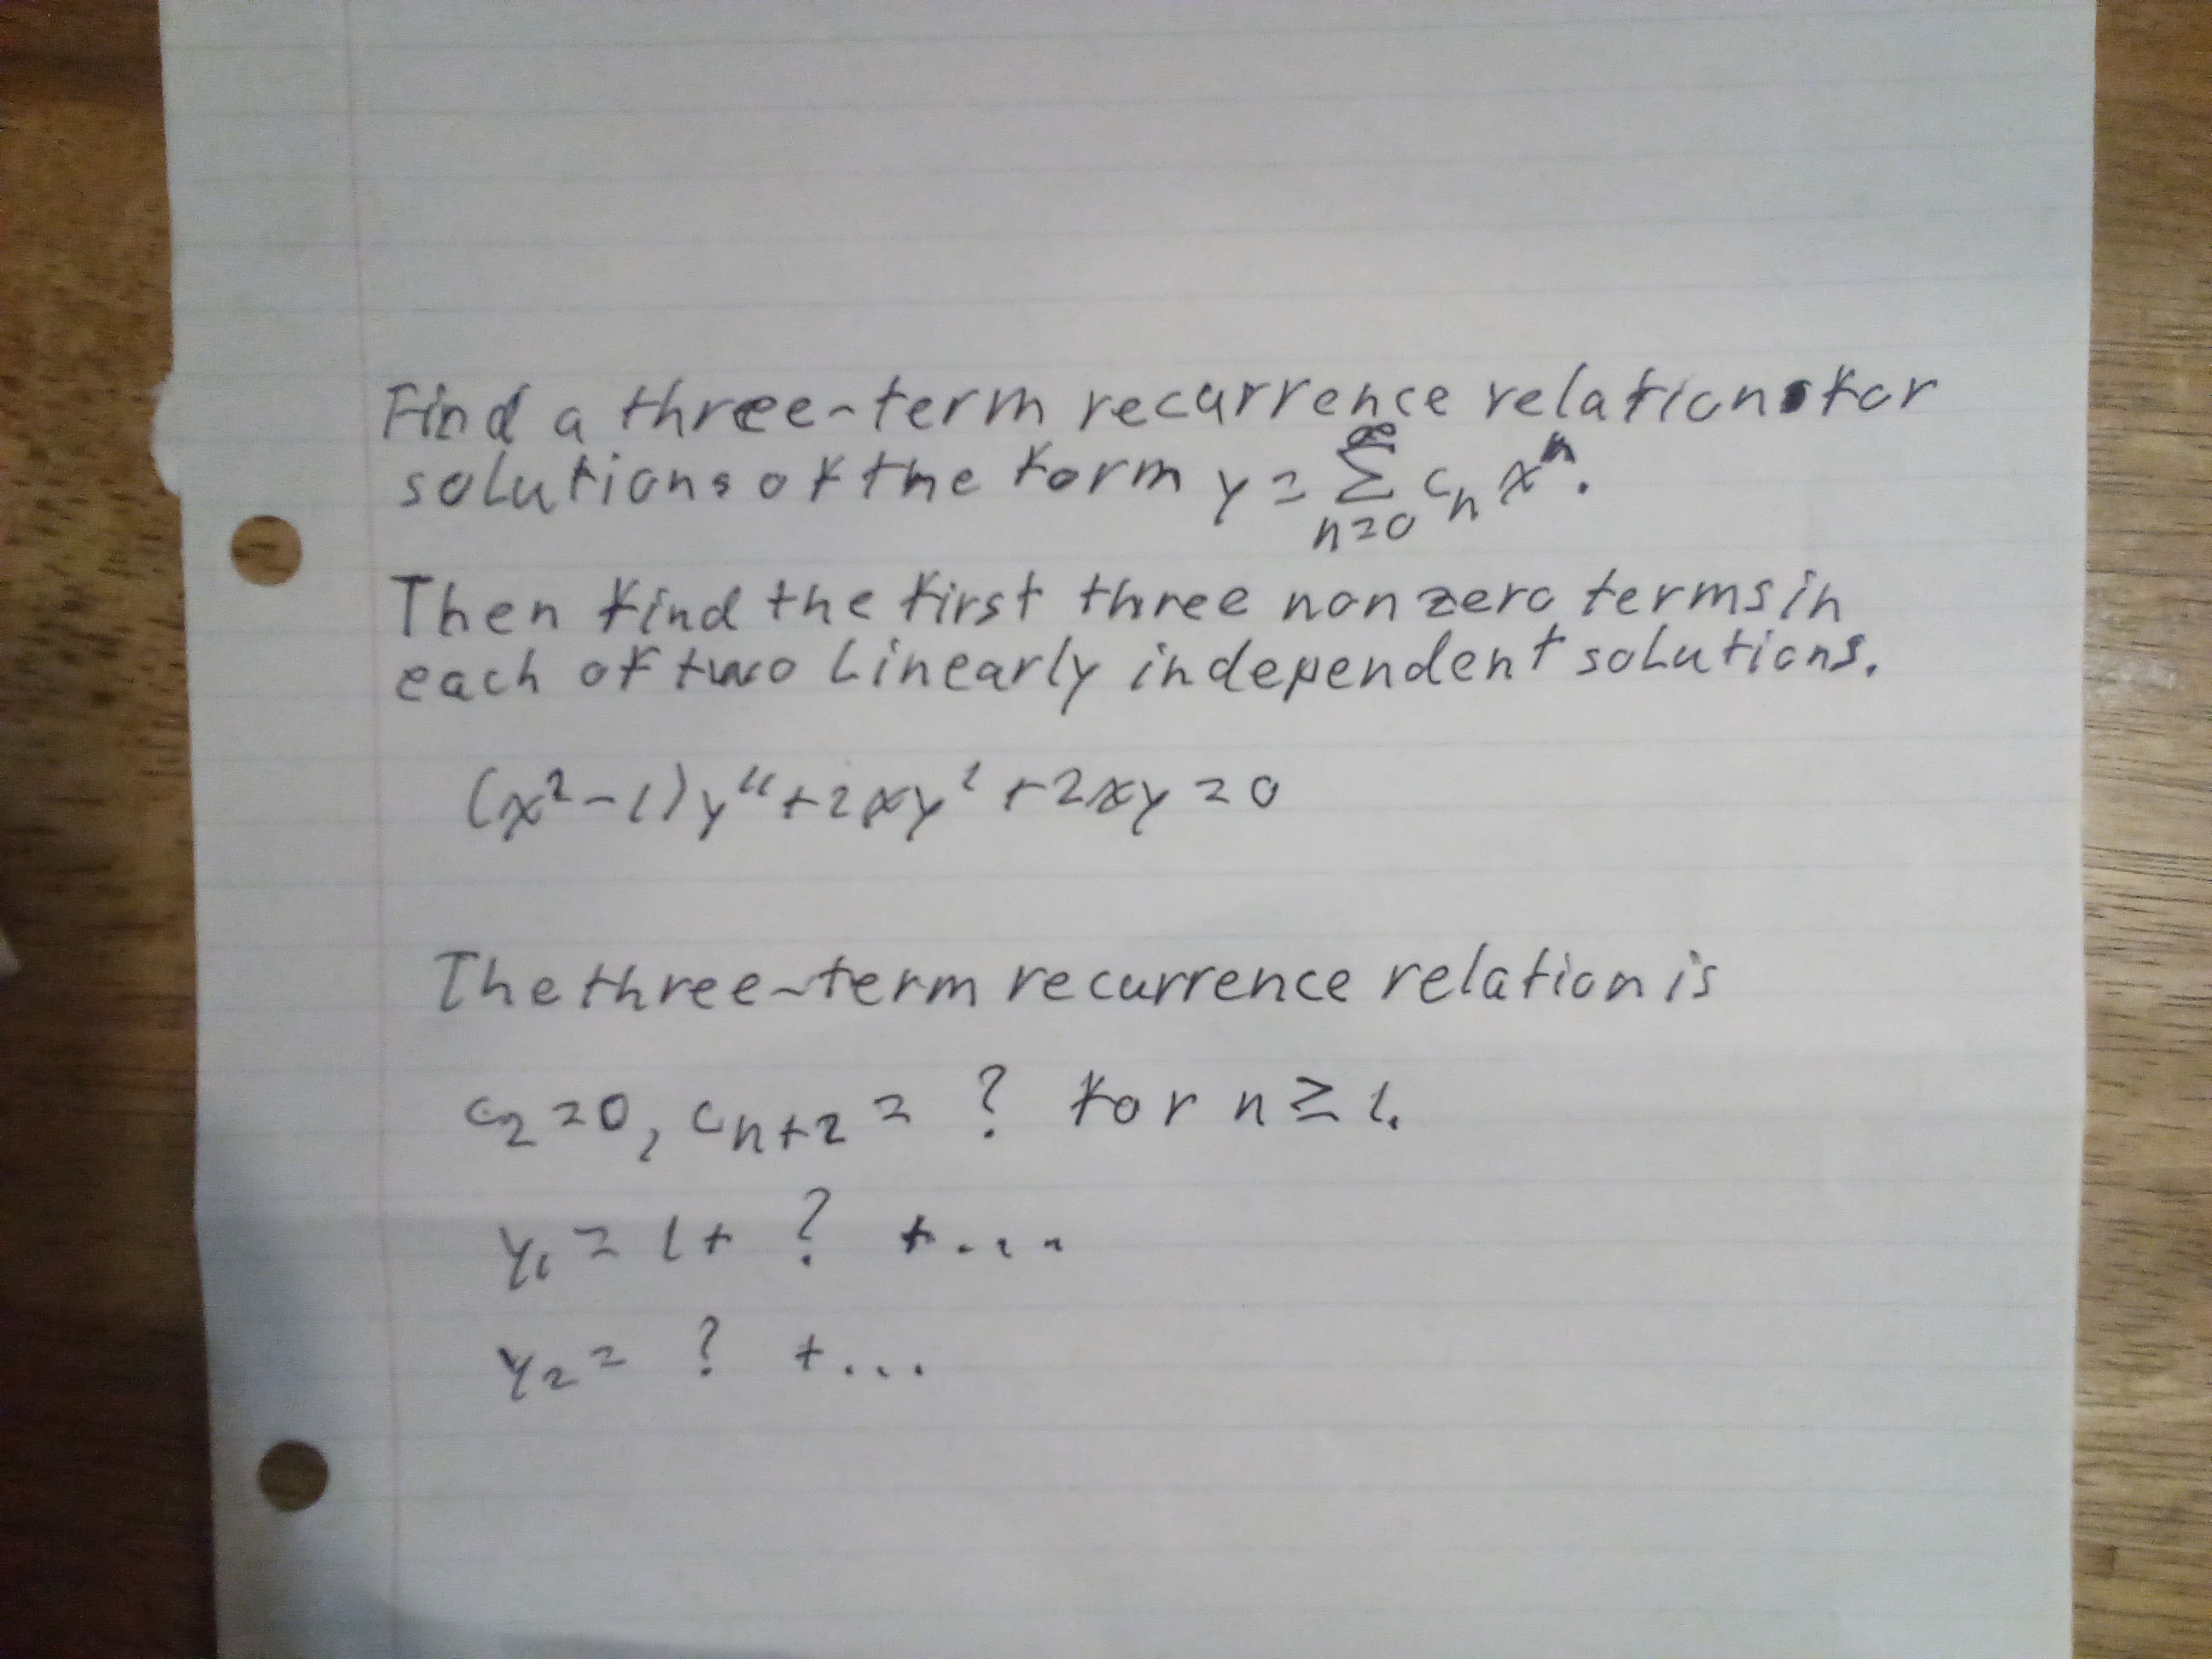 Find a three-term recurrence relation for
solutions of the form y = ∞Σn=0 cₙ xⁿ.
Then find the first three nonzero terms in
each of two linearly independent solutions.
(x²-1)y''+2xy'+2xy=0
The three-term recurrence relation is
c₂=0, cₙ₊₂ = ? for n ≥ 1.
y₁ = 1 + ? + ...
y₂ = ? + ...